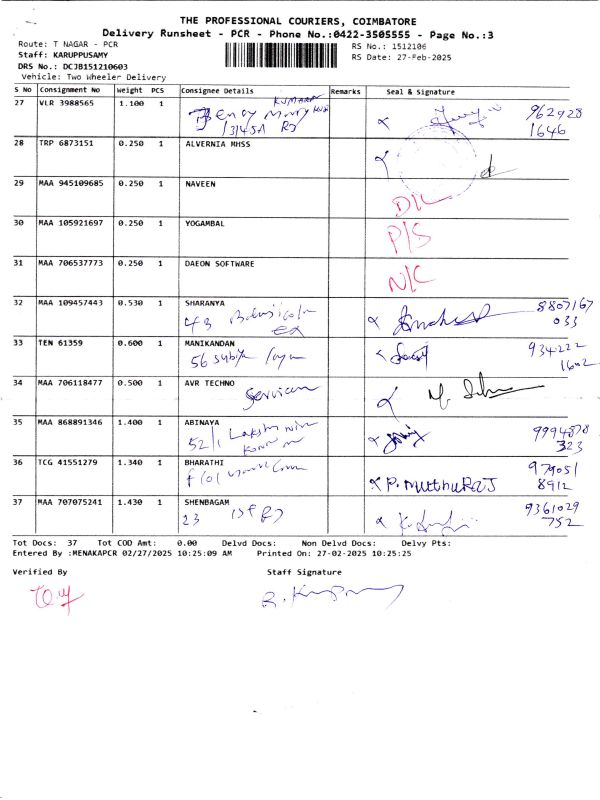 THE PROFESSIONAL COURIERS, COIMBATORE
Delivery Runsheet - PCR - Phone No.:0422-3505555 - Page No.:3
Route: T NAGAR - PCR
RS No.: 1512106
Staff: KARUPPUSAMY
RS Date: 27-Feb-2025
DRS No.: DCJB151210603
Vehicle: Two Wheeler Delivery
S No Consignment No Weight PCS Consignee Details Remarks Seal & signature
27 VLR 3988565 1.100 1 KUMARAN 962928
1646
28 TRP 6873151 0.250 1 ALVERNIA MHSS
29 MAA 945109685 0.250 1 NAVEEN D/L
30 MAA 105921697 0.250 1 YOGAMBAL P/S
31 MAA 706537773 0.250 1 DAEON SOFTWARE N/C
32 MAA 109457443 0.530 1 SHARANYA 8807167
43 033
33 TEN 61359 0.600 1 MANIKANDAN 934222
56 1602
34 MAA 706118477 0.500 1 AVR TECHNO
35 MAA 868891346 1.400 1 ABINAYA 9994878
52/1 Lakshmi 323
36 TCG 41551279 1.340 1 BHARATHI 979051
P. MUTHURAJ 8912
37 MAA 707075241 1.430 1 SHENBAGAM 9361029
23 752
Tot Docs: 37 Tot COD Amt: 0.00 Delvd Docs: Non Delvd Docs: Delvy Pts:
Entered By :MENAKAPCR 02/27/2025 10:25:09 AM Printed On: 27-02-2025 10:25:25
Verified By Staff Signature